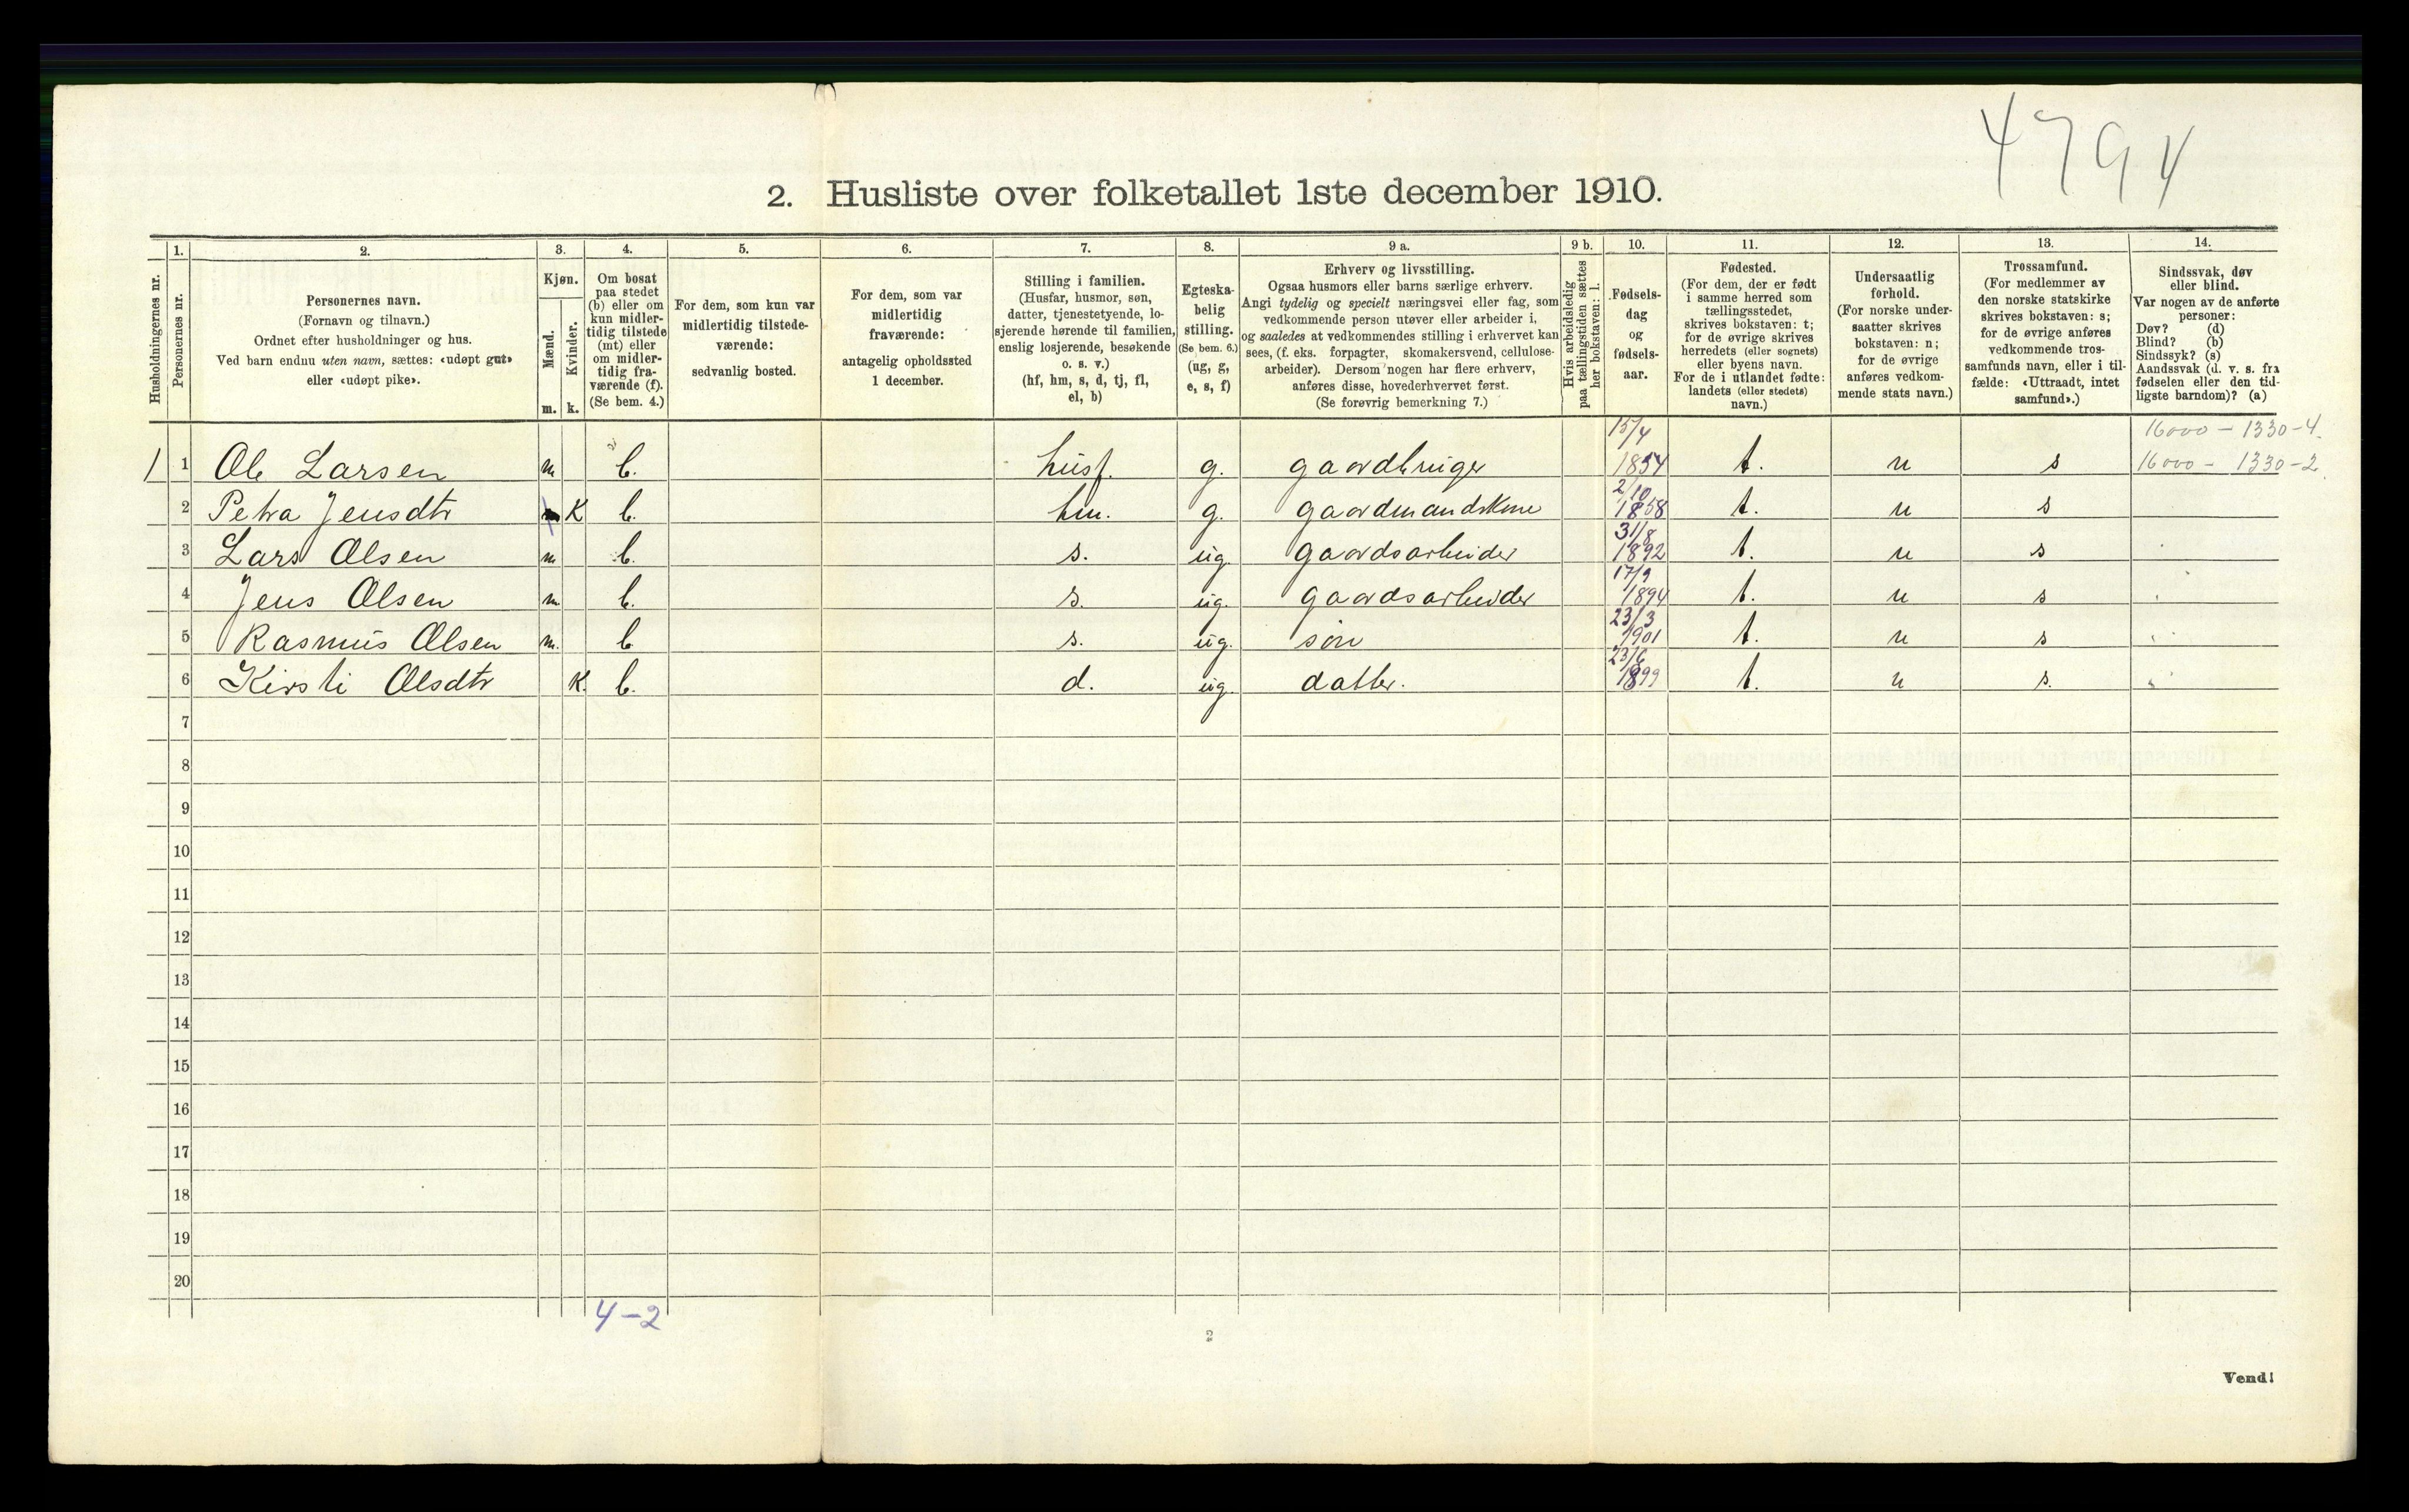 4794
2. Husliste over folketallet 1ste december 1910.
Husholdningernes nr.
1.
Personernes nr.
2.
Personernes navn.
(Fornavn og tilnavn.)
Ordnet efter husholdninger og hus.
Ved barn endnu uten navn, sættes: «udøpt gut»
eller «udøpt pike».
3.
Kjøn.
Mænd.
Kvinder.
m. k.
4.
Om bosat
paa stedet
(b) eller om
kun midler-
tidig tilstede
(mt) eller
om midler-
tidig fra-
værende (f).
(Se bem. 4.)
5.
For dem, som kun var
midlertidig tilstede-
værende:
sedvanlig bosted.
6.
For dem, som var
midlertidig
fraværende:
antagelig opholdssted
1 december.
7.
Stilling i familien.
(Husfar, husmor, søn,
datter, tjenestetyende, lo-
sjerende hørende til familien,
enslig losjerende, besøkende
o. s. v.)
(hf, hm, s, d, tj, fl,
el, b)
8.
Egteska-
belig
stilling.
(Se bem. 6.)
(ug, g,
e, s, f)
9 a.
Erhverv og livsstilling.
Ogsaa husmors eller barns særlige erhverv.
Angi tydelig og specielt næringsvei eller fag, som
vedkommende person utøver eller arbeider i,
og saaledes at vedkommendes stilling i erhvervet kan
sees, (f. eks. forpagter, skomakersvend, cellulose-
arbeider). Dersom nogen har flere erhverv,
anføres disse, hovederhvervet først.
(Se forøvrig bemerkning 7.)
9 b.
Hvis arbeidsledig
paa tællingstiden sættes
her bokstaven: l.
10.
Fødsels-
dag
og
fødsels-
aar.
11.
Fødested.
(For dem, der er født
i samme herred som
tællingsstedet,
skrives bokstaven: t;
for de øvrige skrives
herredets (eller sognets)
eller byens navn.
For de i utlandet fødte:
landets (eller stedets)
navn.)
12.
Undersaatlig
forhold.
(For norske under-
saatter skrives
bokstaven: n;
for de øvrige
anføres vedkom-
mende stats navn.)
13.
Trossamfund.
(For medlemmer av
den norske statskirke
skrives bokstaven: s;
for de øvrige anføres
vedkommende tros-
samfunds navn, eller i til-
fælde: «Uttraadt, intet
samfund».)
14.
Sindssvak, døv
eller blind.
Var nogen av de anførte
personer:
Døv? (d)
Blind? (b)
Sindssyk? (s)
Aandssvak (d. v. s. fra
fødselen eller den tid-
ligste barndom)? (a)
16000 - 1330-4.
1 1 Ole Larsen m b. husf. g. gaardbruger 15/4 1854 t. n s 16000 - 1330-2
2 Petra Jensdtr K b. hm. g. gaardmandskone 2/10 1858 t. n s
3 Lars Olsen m b. s. ug. gaardsarbeider 31/8 1892 t. n s
4 Jens Olsen m. b. s. ug. gaardsarbeider 17/9 1894 t. n s
5 Rasmus Olsen m. b s. ug. søn 23/3 1901 t. n s
6 Kirsti Olsdtr K. b. d. ug. datter. 23/6 1899 t. n s.
7
8
9
10
11
12
13
14
15
16
17
18
19
20
4-2
2
Vend!